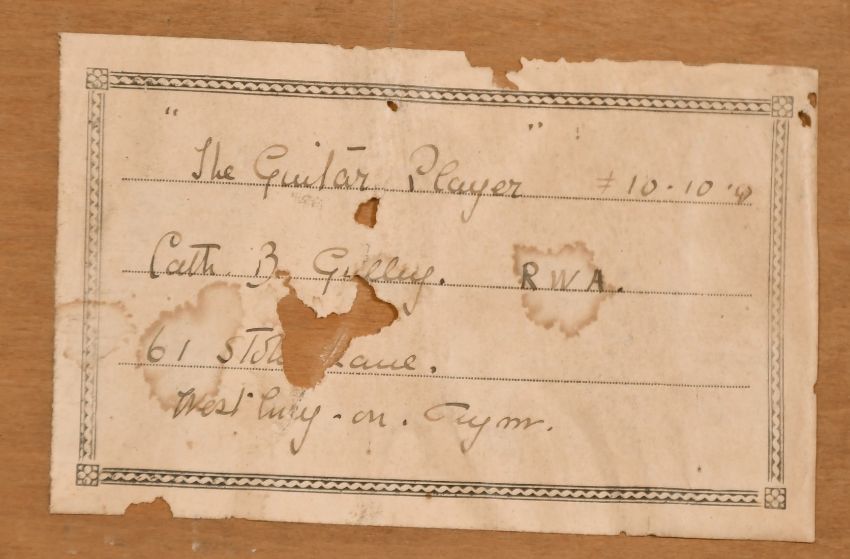 "The Guitar Player" £10.10.0
Cath. B. Gulley. RWA.
61 Sto Lane.
Westbury-on-Trym.